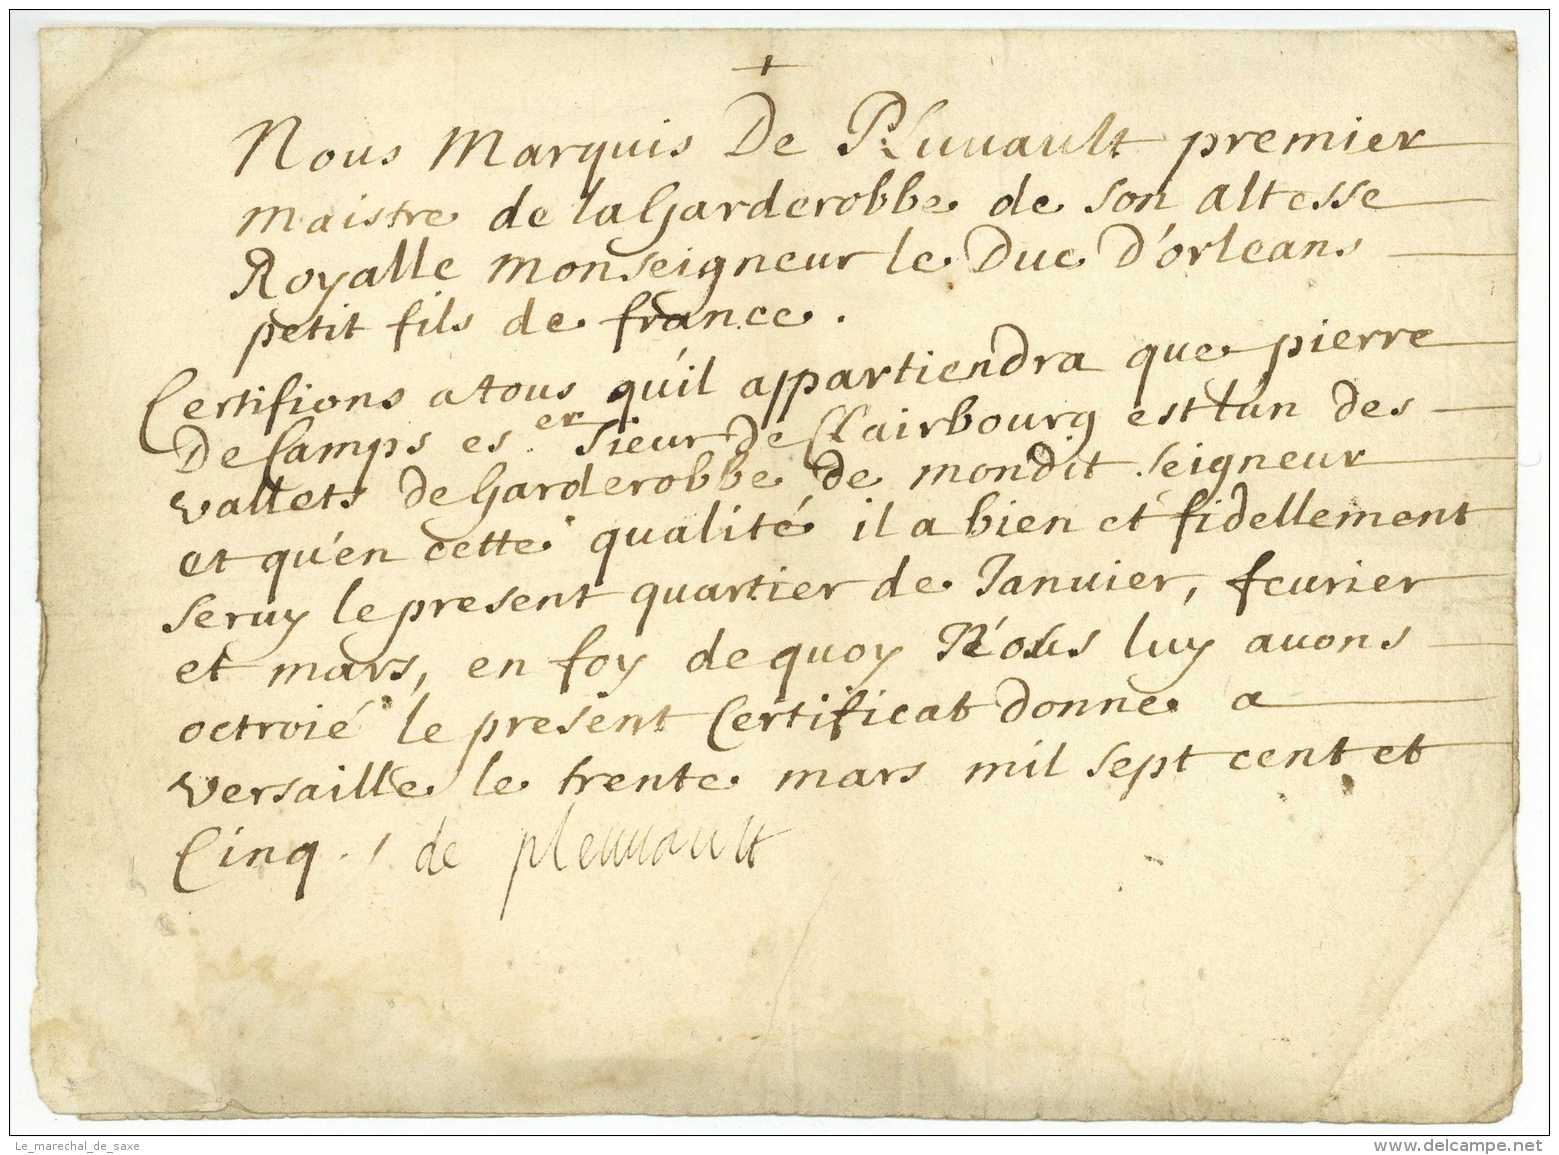 +
Nous Marquis De Pluuault premier
maistre de la Garderobbe de son altesse
Royalle monseigneur le Duc D'orleans
petit fils de france.
Certifions a tous qu'il appartiendra que pierre
De Camps es.er sieur De Clairbourg est l'un des
vallets De Garderobbe de mondit seigneur
et qu'en cette qualité il a bien et fidellement
seruy le present quartier de Januier, feurier
et mars, en foy de quoy Nous luy auons
octroié le present Certificat donne a
versaille le trente mars mil sept cent et
Cinq. / de pleuuault
Le_marechal_de_saxe
www.delcampe.net